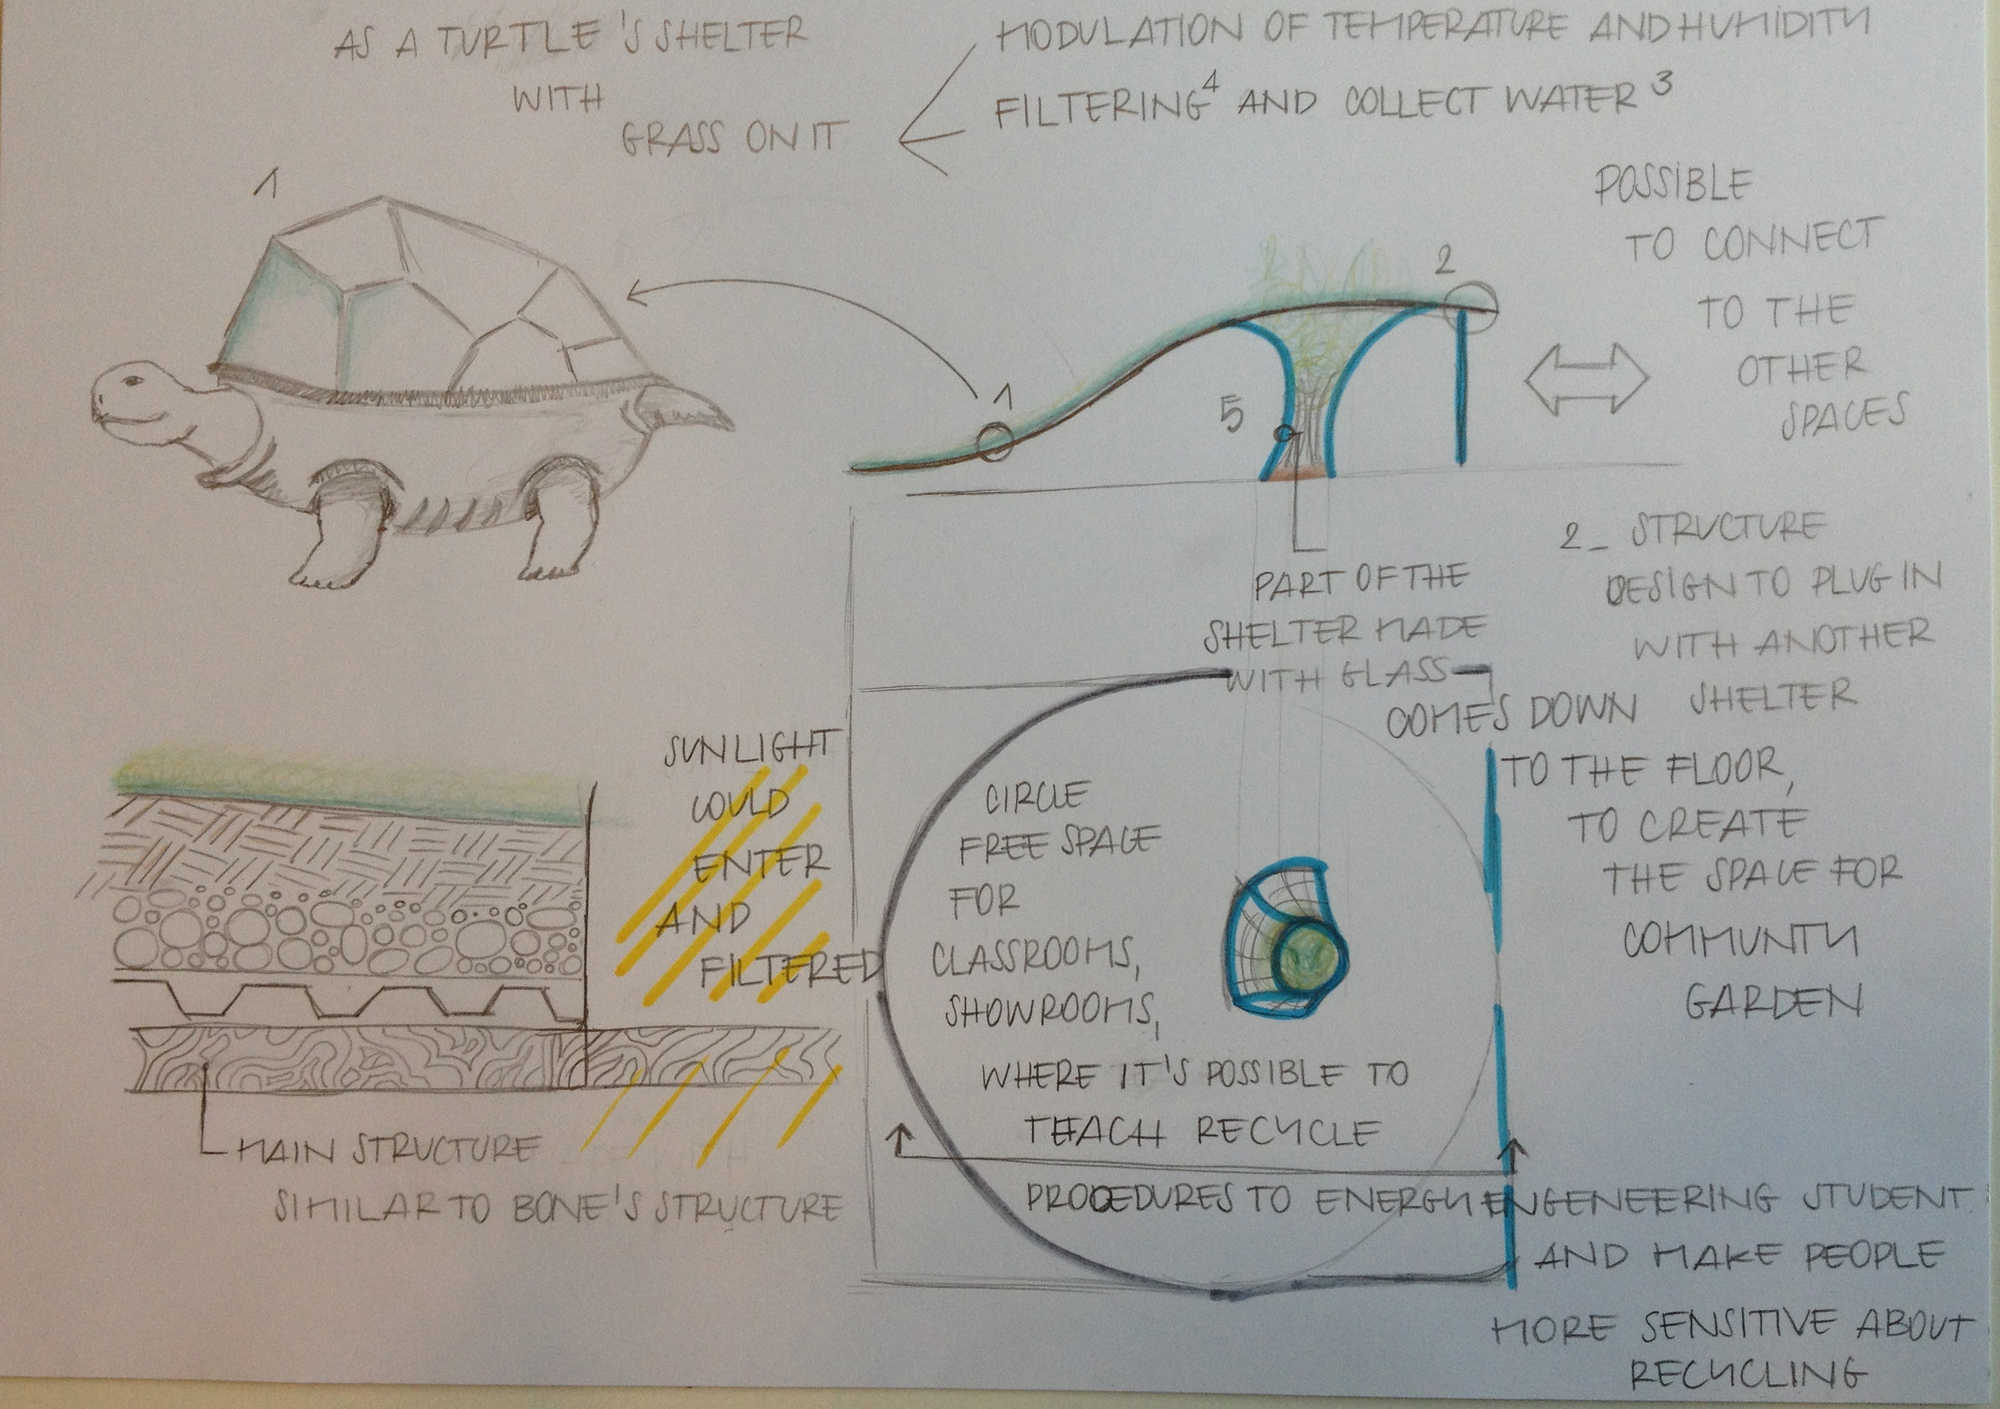 AS A TURTLE'S SHELTER
WITH
GRASS ON IT
MODULATION OF TEMPERATURE AND HUMIDITY
FILTERING⁴ AND COLLECT WATER³
1
POSSIBLE
TO CONNECT
TO THE
OTHER
SPACES
2
1
5
PART OF THE
SHELTER MADE
WITH GLASS
COMES DOWN
TO THE FLOOR,
TO CREATE
THE SPACE FOR
COMMUNTY
GARDEN
2_ STRUCTURE
DESIGN TO PLUG IN
WITH ANOTHER
SHELTER
SUNLIGHT
COULD
ENTER
AND
FILTERED
CIRCLE
FREE SPACE
FOR
CLASSROOMS,
SHOWROOMS,
WHERE IT'S POSSIBLE TO
TEACH RECYCLE
PROCEDURES TO ENERGY ENGENEERING STUDENT
AND MAKE PEOPLE
MORE SENSITIVE ABOUT
RECYCLING
MAIN STRUCTURE
SIMILAR TO BONE'S STRUCTURE